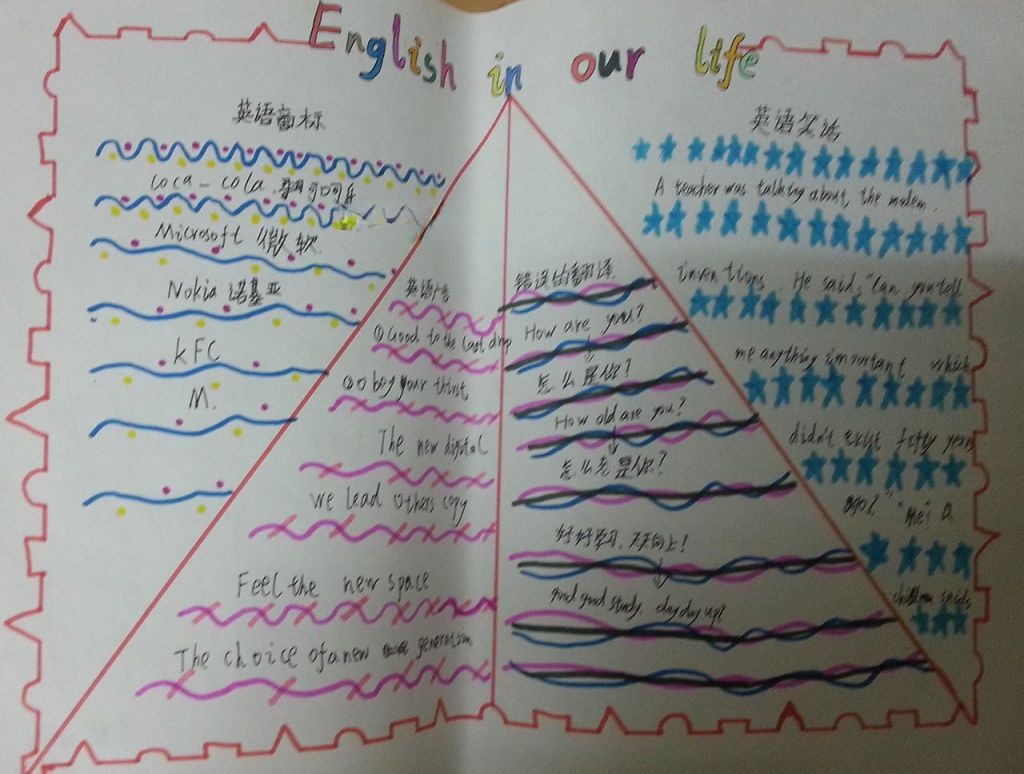 English in our life
英语商标
coca-cola 可口可乐
Microsoft 微软
Nokia 诺基亚
KFC
M.
英语广告
① Good to the last drop
② o bey your thirst
The new digital
We lead Others copy
Feel the new space
The choice of a new generation
错误的翻译
How are you?
怎么是你?
How old are you?
怎么老是你?
好好学习,天天向上!
good good study, day day up?
英语笑话
A teacher was talking about the modem.
inventions. He said, "Can you tell
me anything important which
didn't exist fifty years
ago?" "Me! a
children said.